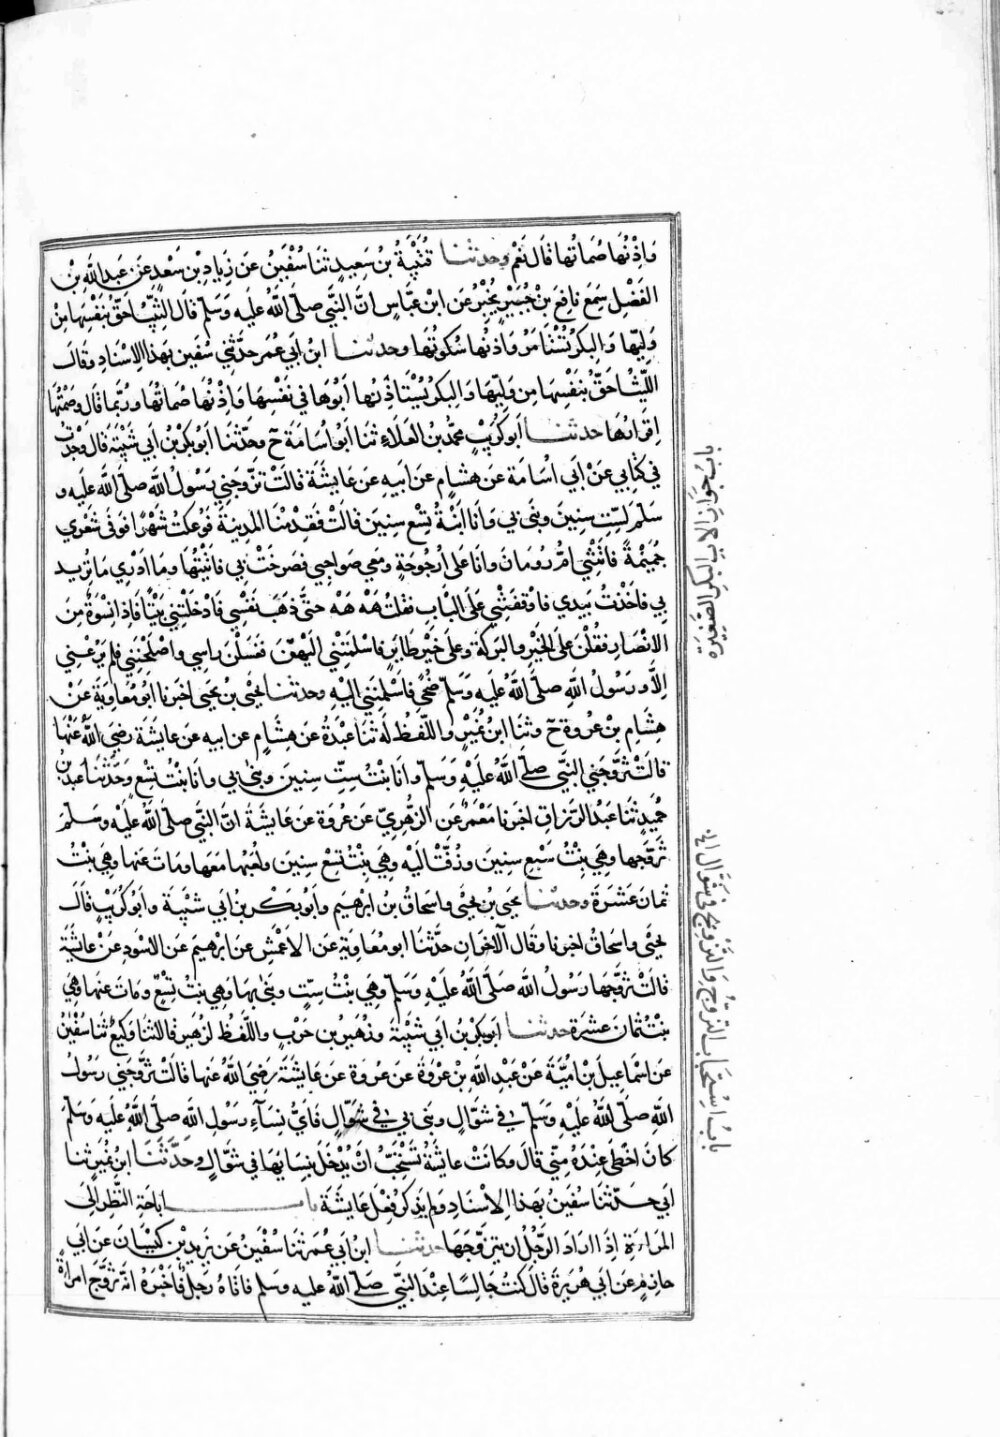 وَاِذْنُهَا صُمَاتُهَا قَالَ نَعَمْ وحدثنا قُتَيْبَةُ بْنُ سَعِيدٍ ثَنَا سُفْيَنُ عَن زِيَادِ بْنِ سَعْدٍ عَن عَبدِ اللَّهِ بْنِ
الفَضْلِ سَمِعَ نافِعَ بْنَ جُبَيْرٍ يُخْبِرُ عَنِ ابْنِ عبَّاسٍ انَّ النَّبِيَّ صلَّى اللَّهُ عليَهِ وَسَلَّم قَالَ الثَّيِّبُ احَقُّ بِنَفْسِهَا مِنْ
وَلِيِّها وَالبِكرُ تُسْتَامَرُ وَاِذنُها سُكوتُهَا وحدثنا ابنُ ابي عُمر حدَّثَنِي سُفْيَن بهَذا الاِسْنَادِ وَقَالَ
الثَّيِّبُ احَقُّ بِنَفْسِهَا مِن وَلِيِّهَا وَالبِكرُ يَسْتَاْذِنُهَا اَبُوهَا فِي نَفْسِهَا وَاِذْنُهَا صُمَاتُهَا وَرُبَّما قَالَ وَصَمْتُهَا
اِقرَارُهَا حدثنا اَبو كُرَيْبٍ محمَّدُ بنُ العَلَاءِ ثَنا ابُو اُسَامَةَ ح وحدَّثَنَا ابو بكرِ بْنُ ابي شَيْبَةَ قَالَ وجَدتُ
في كتَابي عَنْ ابِي اُسَامَةَ عَن هِشَامٍ عَن ابِيهِ عَن عَايشَةَ قَالَتْ تَزَوَّجَنِي رَسُولُ اللَّه صلَّى اللَّهُ عليه و
سَلمَ لِسِتِّ سِنِينَ وبَنَى بي وَاَنَا ابْنَةُ تِسْعِ سِنِينَ قَالَتْ فَقَدِمْنَا المدِينَةَ فَوُعِكْتُ شَهْرًا فَوَفَى شَعْرِي
جُمَيْمَةً فَاَتَتْنِي امُّ رُومَانَ وَانَا عَلَى اُرْجُوحَةٍ وَمَعِي صَوَاحِبي فَصَرَخَتْ بِي فَاتَيْتُهَا وَمَا ادْرِي مَا تُرِيد
بي فَاَخَذَتْ بِيَدِي فَاَوْقَفَتْنِي عَلَى البَابِ فَقلتُ هَهْ هَهْ حَتَّى ذَهَبَ نَفَسِي فَادْخَلَتْنِي بَيْتًا فَاِذَا نِسْوَةٌ مِنَ
الانْصَارِ فَقُلْنَ عَلَى الخَيْرِ والبَرَكَة وعَلَى خَيْرِ طايرٍ فاسْلَمَتْنِي اليْهِنَّ فَغَسَلْنَ رَاسِي واصْلَحْنَنِي فلم يَرُعْنِي
اِلَّا وَرَسُولُ اللَّهِ صلَّى اللَّهُ عَلَيهِ وَسَلَّم ضُحًى فَاسْلَمْنَنِي اليْهِ وحدثنا يَحيَى بْن يَحيَى اخبَرنا ابُو مُعَاوِيَةَ عَنْ
هِشَامِ بْنِ عُرْوَةَ ح وثَنَا ابْنُ نُمَيْرٍ وَاللَّفظُ لَهُ ثَنَا عَبْدَةُ عَن هِشَامٍ عَن ابيهِ عَن عَايشَةَ رضِيَ اللَّهُ عَنْهَا
قالَتْ تَزَوَّجَنِي النَّبِيُّ صَلَّى اللَّهُ عَلَيْهِ وَسَلَّم وَانَا بِنْتُ سِتِّ سِنِينَ وبَنَى بِي وَانَا بِنْتُ تِسْعٍ وَحَدَّثَنَا عَبد بنُ
حُمَيدٍ ثَنَا عَبدُ الرَّزاقِ اخبَرنا مَعْمَرٌ عَنِ الزُّهْرِيِّ عَن عُرْوَةَ عَن عَايشَةَ انَّ النَّبِيَّ صَلَّى اللَّهُ عَلَيْهِ وسَلَّمَ
تَزَوَّجَها وَهِيَ بِنْتُ سَبْعِ سِنِينَ وَزُفَّتْ اليْهِ وَهِيَ بِنْتُ تِسْعِ سِنِينَ ولُعَبُهَا مَعَهَا وَمَاتَ عَنهَا وَهِيَ بِنْتُ
ثَمَانَ عَشَرَةَ وحدثنا يَحيَى بْنُ يَحيَى وَاِسحَاقُ بْنُ اِبْرهيم وَاَبُو بَكْرِ بْنُ ابي شَيْبَةَ وابو كُرَيْبٍ قَالَ
يحيَى واِسحَاقُ اخبرنا وقَالَ الآخَرَانِ حدَّثَنَا ابو مُعَاوِيَةَ عَن الاَعْمَشِ عَن اِبْرهِيمَ عَن الاَسْوَدِ عَنْ عَايشَةَ
قالَتْ تَزَوَّجَهَا رَسُولُ اللَّه صَلَّى اللَّهُ عَلَيْهِ وَسَلَّم وَهِيَ بِنْتُ سِتٍّ وبَنَى بِهَا وَهِيَ بِنْتُ تِسْعٍ ومَاتَ عنهَا وهِيَ
بِنْتُ ثَمَانَ عشرَةَ حدثنا ابو بَكْرِ بْنُ ابي شَيْبَةَ وزُهَيْرُ بْن حَرْبٍ واللَّفظُ لزُهَيرٍ قَالا ثَنَا وَكِيعٌ ثَنَا سُفْيَنُ
عَن اِسْمَاعِيلَ بْنِ اُمَيَّةَ عَنْ عَبْدِ اللَّه بْنِ عُرْوَةَ عَن عُروَةَ عَن عَايشَةَ رَضِيَ اللَّهُ عَنهَا قَالَتْ تَزَوَّجَنِي رَسُولُ
اللَّه صلَّى اللَّهُ عَلَيْهِ وَسَلَّم في شَوَّالٍ وبَنَى بِي في شَوَّالٍ فَايُّ نِسَاءِ رسُولِ اللَّه صلَّى اللَّهُ عَلَيْهِ وَسَلَّمَ
كَانَ احْظَى عِنْدَهُ مِنِّي قالَ وكانَتْ عايشَةُ تَسْتَحِبُّ انْ يُدْخَلَ بِنِسَايهَا في شوَّالٍ وحَدَّثَنَا ابنُ نُمَيرٍ ثَنا
ابي حدَّثَنَا سُفْيَنُ بهَذا الاِسْنَادِ وَلم يَذكُر فِعْلَ عَايشَةَ باب اِبَاحَةِ النَّظَرِ اِلَى
المَراءةِ اِذَا ارَادَ الرَّجُلُ ان يَتزَوَّجَهَا حدثنا ابْنُ ابي عُمَرَ ثَنَا سُفْيَنُ عَن يَزِيدَ بْنِ كَيْسَانَ عَن ابي
حازِمٍ عَن ابي هُرَيرَةَ قَالَ كُنتُ جَالِسًا عِنْدَ النَّبِيِّ صَلَّى اللَّهُ عَليه وسَلم فَاتَاهُ رَجلٌ فَاَخْبَرَهُ انَّهُ تَزَوَّجَ امراةً
باب جَوَازِ الاب البكرَ الصَّغِيرَة
باب استِحبَاب التزوجِ والتَّزويج في شَوَّال